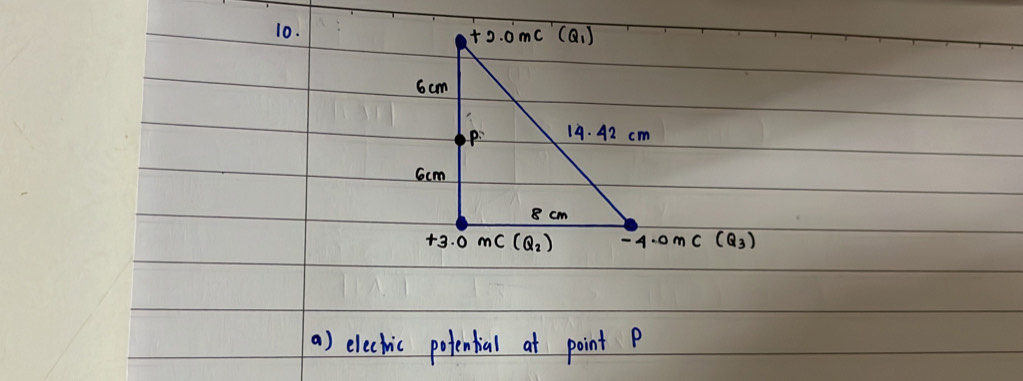 10.
+2.0 mC (Q₁)
6 cm
P
14.42 cm
6cm
8 cm
+3.0 mC (Q₂)
-4.0 mC (Q₃)
a) electric potential at point P